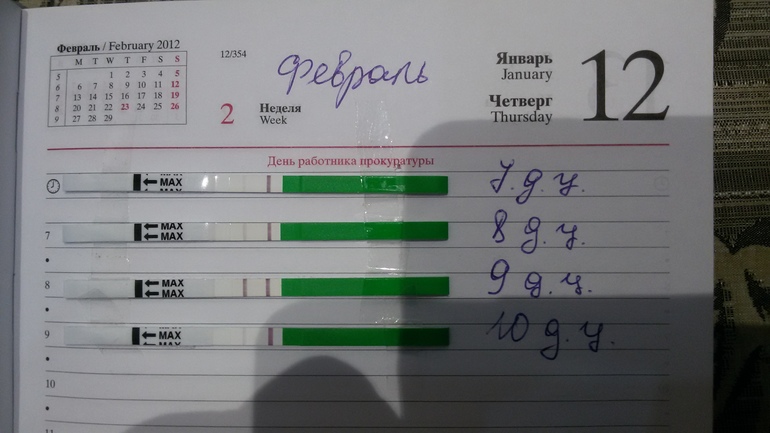 Февраль / February 2012
М Т W T F S S
5 1 2 3 4 5
6 6 7 8 9 10 11 12
7 13 14 15 16 17 18 19
8 20 21 22 23 24 25 26
9 27 28 29
12/354
Февраль
2 Неделя
Week
Январь
January
Четверг
Thursday
12
День работника прокуратуры
MAX
7 д.ц.
7
MAX
MAX
8 д.ц.
8
MAX
MAX
9 д.ц.
9
MAX
MAX
10 д.ц.
10
11